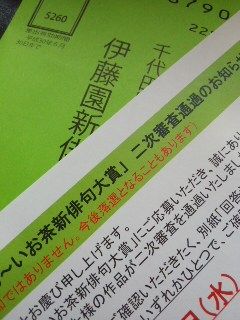 5260
差出有効期間
平成30年6月
30日まで
790
千代田
伊藤園新俳
～いお茶新俳句大賞」二次審査通過のお知らせ
ではありません。今後落選となることもあります)
お慶び申し上げます。
お茶新俳句大賞」にご応募いただき、誠にあり
様の作品が二次審査を通過いたしまし
確認いただきたく、別紙「回答
いずれかひとつで、ご
(水)